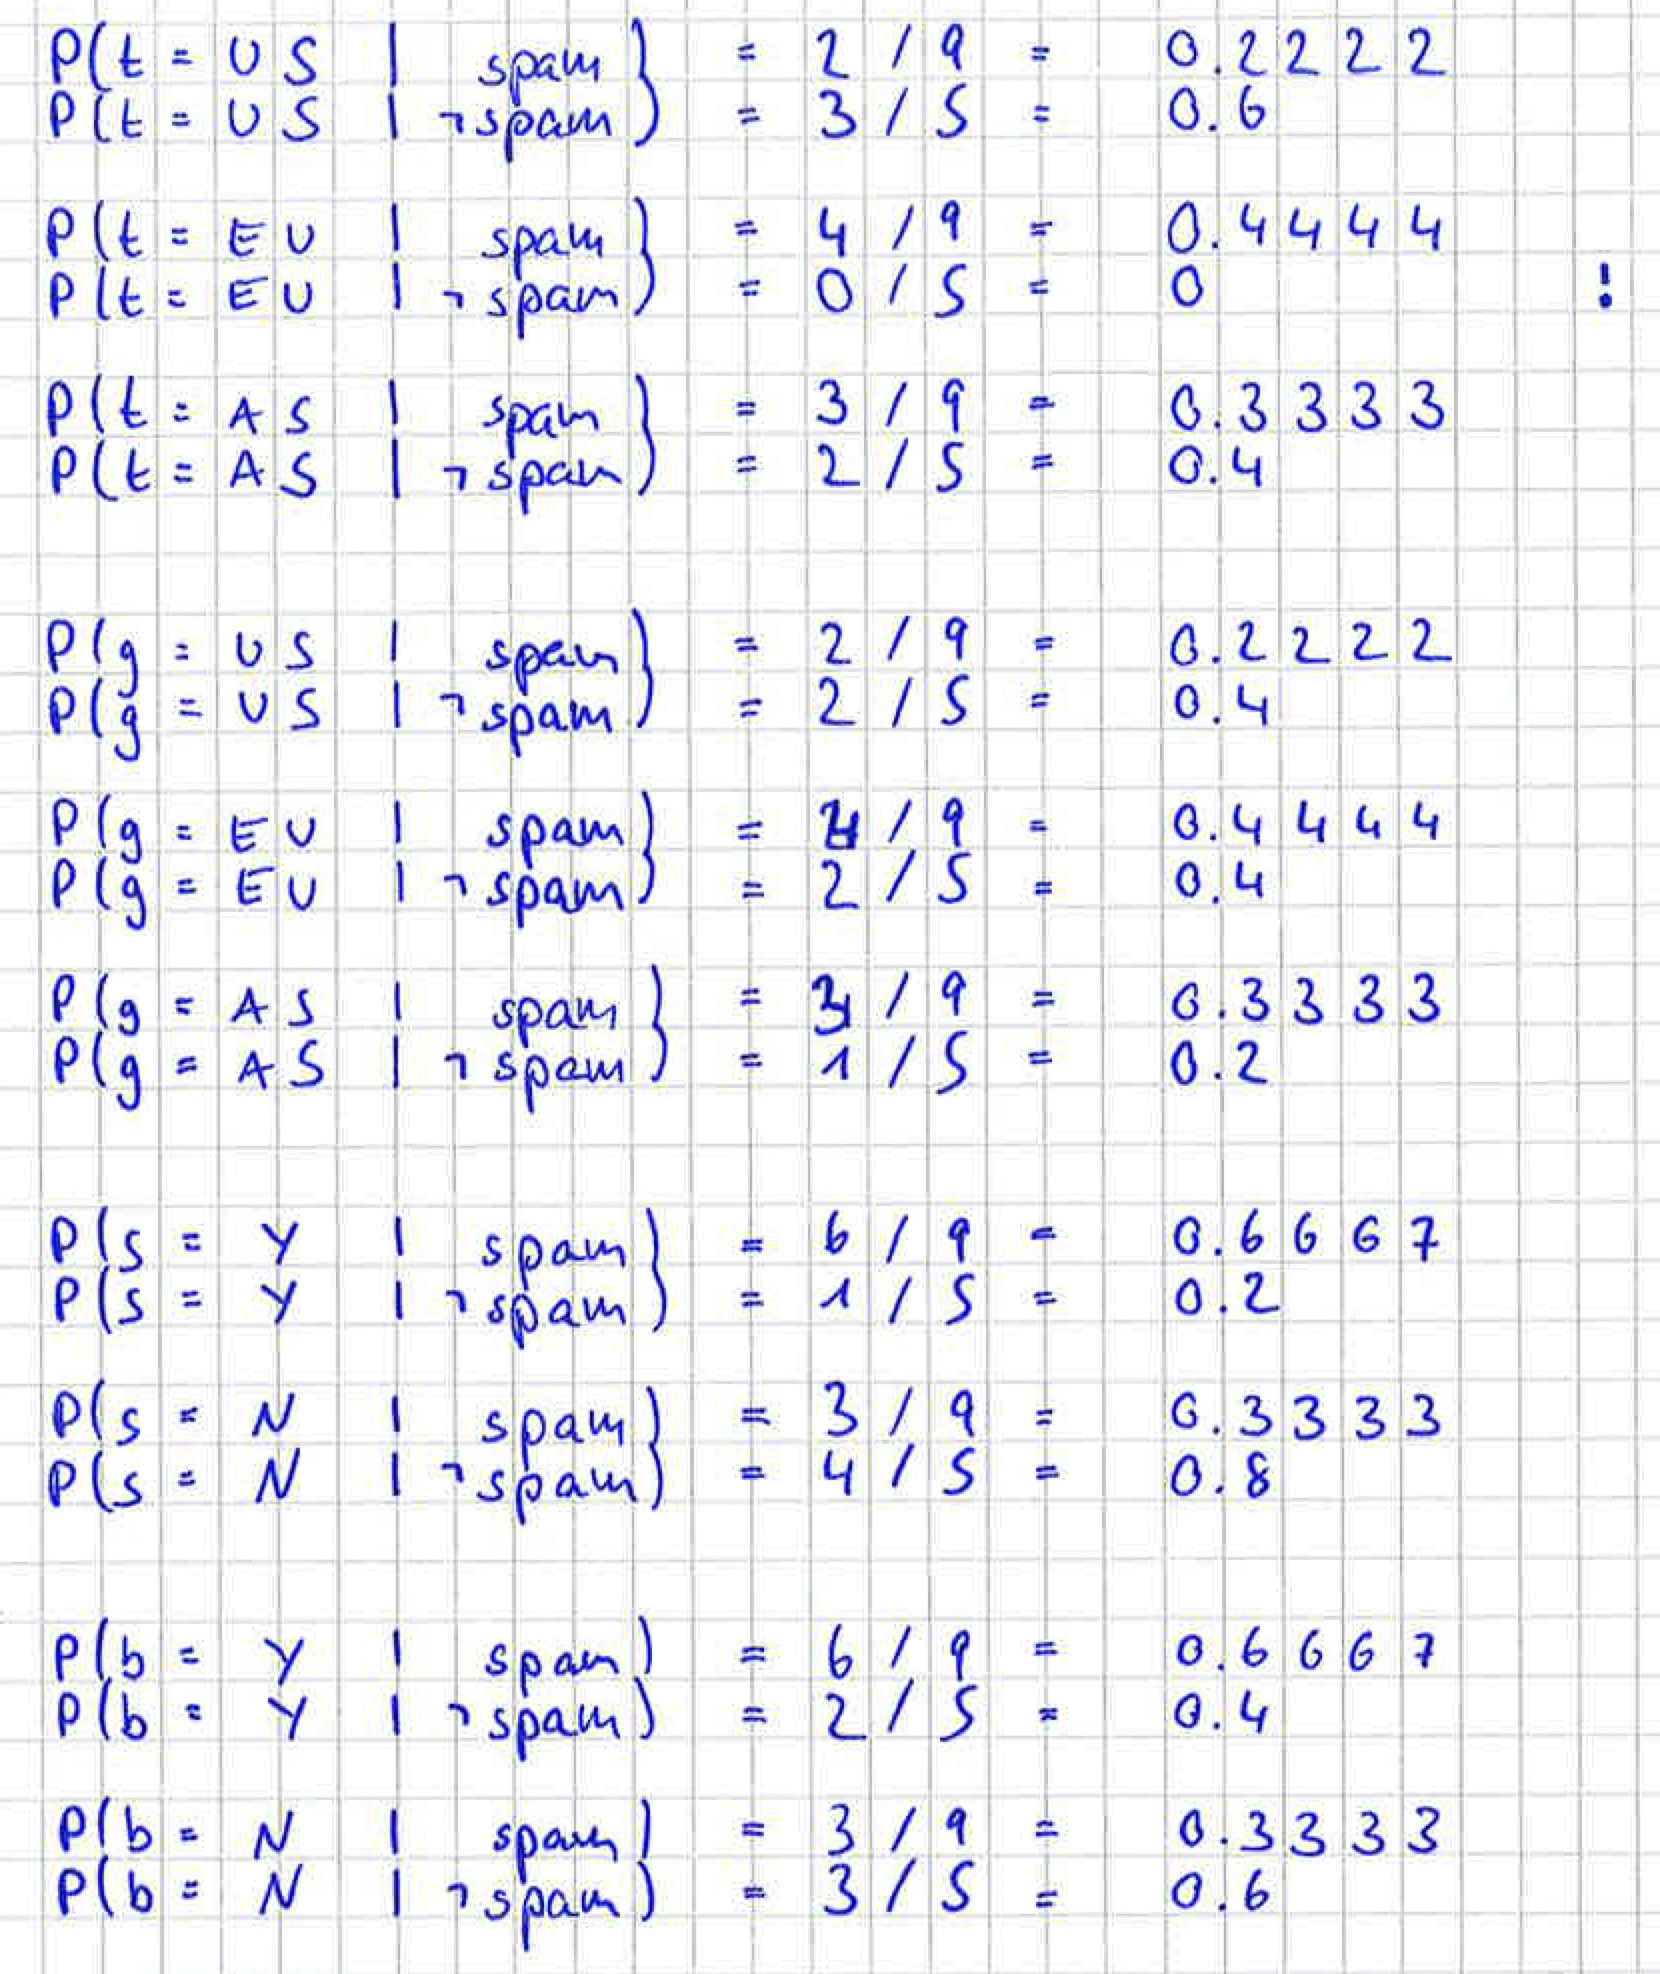 P(t = US | spam) = 2 / 9 = 0.2222
P(t = US | ¬spam) = 3 / 5 = 0.6
P(t = EU | spam) = 4 / 9 = 0.4444
P(t = EU | ¬spam) = 0 / 5 = 0 !
P(t = AS | spam) = 3 / 9 = 0.3333
P(t = AS | ¬spam) = 2 / 5 = 0.4
P(g = US | spam) = 2 / 9 = 0.2222
P(g = US | ¬spam) = 2 / 5 = 0.4
P(g = EU | spam) = 4 / 9 = 0.4444
P(g = EU | ¬spam) = 2 / 5 = 0.4
P(g = AS | spam) = 3 / 9 = 0.3333
P(g = AS | ¬spam) = 1 / 5 = 0.2
P(s = Y | spam) = 6 / 9 = 0.6667
P(s = Y | ¬spam) = 1 / 5 = 0.2
P(s = N | spam) = 3 / 9 = 0.3333
P(s = N | ¬spam) = 4 / 5 = 0.8
P(b = Y | spam) = 6 / 9 = 0.6667
P(b = Y | ¬spam) = 2 / 5 = 0.4
P(b = N | spam) = 3 / 9 = 0.3333
P(b = N | ¬spam) = 3 / 5 = 0.6